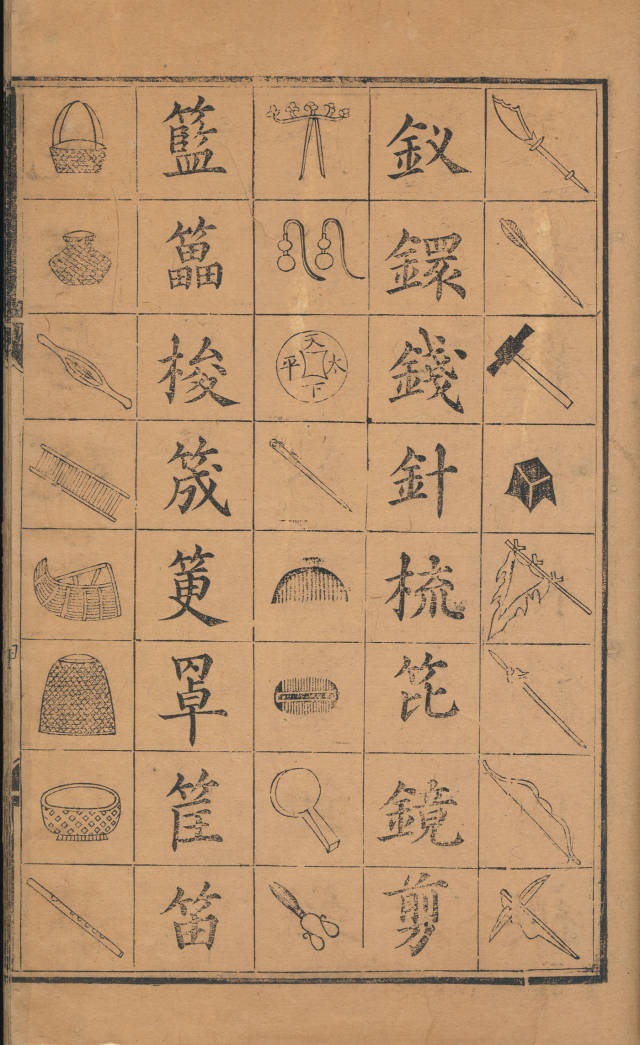 釵鐶錢針梳笓鏡剪
天下太平
籃
梭筬筻罩筐笛